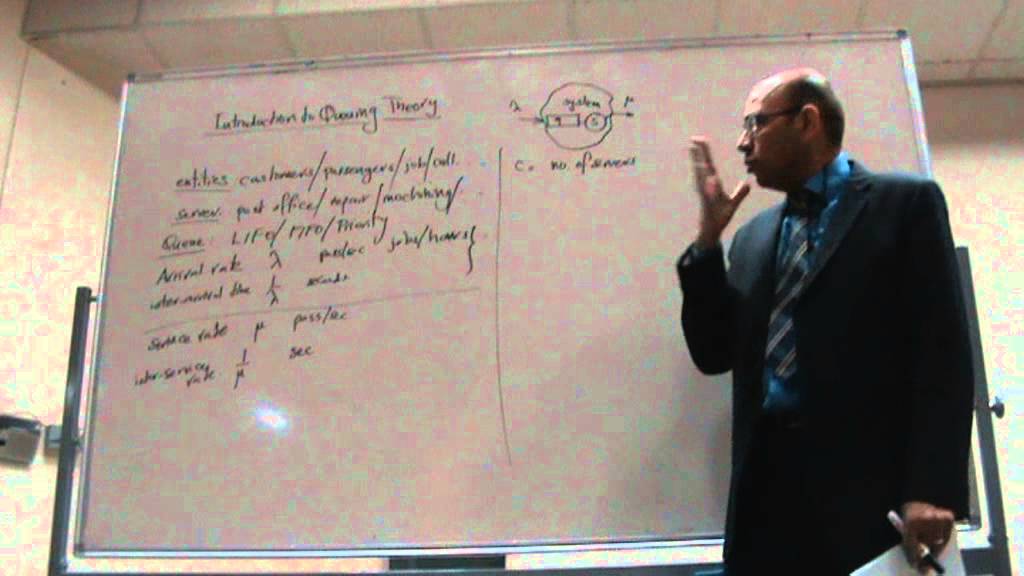 Introduction to Queuing Theory
entities: customers/passengers/job/call.
server: post office/repair/machining/
Queue: LIFO/FIFO/Priority
Arrival rate λ pass/sec jobs/hours
inter-arrival time 1/λ seconds
service rate μ pass/sec
inter-service rate 1/μ sec
λ system μ
q c
C = no. of servers